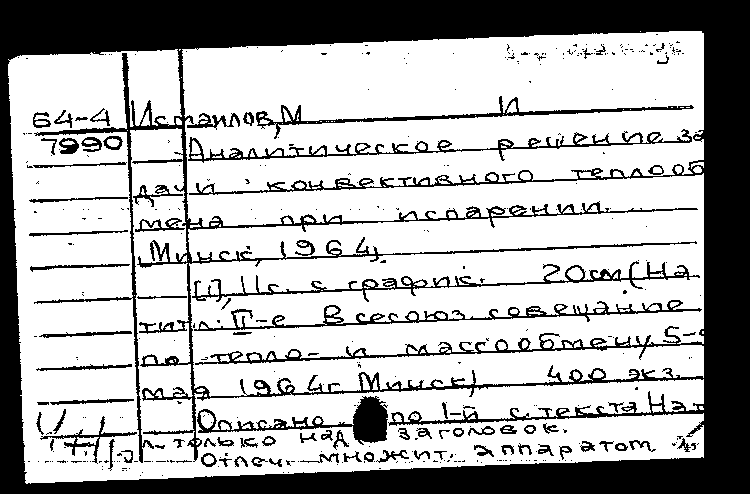 64-4 Исмаилов, М И
7990 Аналитическое решение за
дачи конвективного теплооб
мена при испарении.
Минск, 1964.
[1], 11с. с график. 20см (На
титл: II-е Всесоюз. совещание
по тепло- и массообмену. 5-9
мая 1964г Минск) 400 экз.
Описано по 1-й с. текста. На т
л- только надзаголовок.
Отпеч. множит. аппаратом